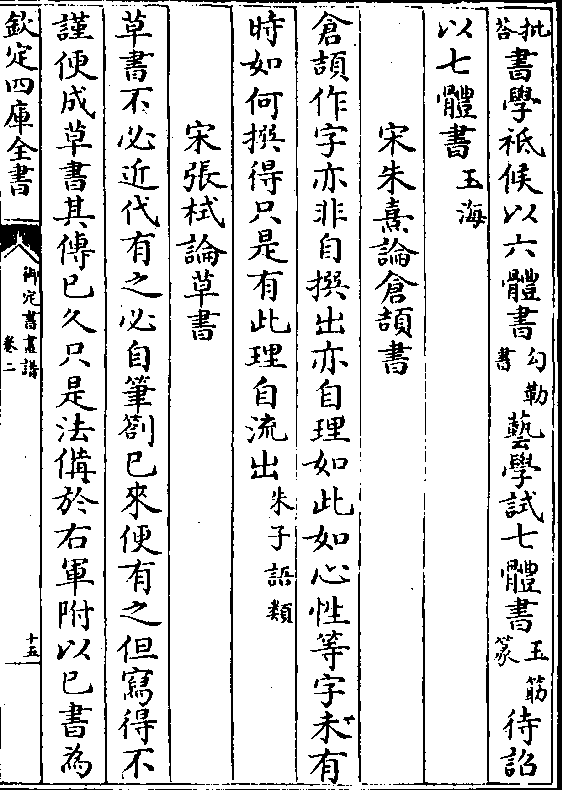 批荅書學祗候以六體書勾勒書藝學試七體書玉筯篆待詔
以七體書玉海
宋朱熹論倉頡書
倉頡作字亦非自撰出亦自理如此如心性等字未有
時如何撰得只是有此理自流出朱子語類
宋張栻論草書
草書不必近代有之必自筆劄已來便有之但寫得不
謹便成草書其傳已久只是法備於右軍附以已書為
欽定四庫全書
御定書畫譜
卷二
十五